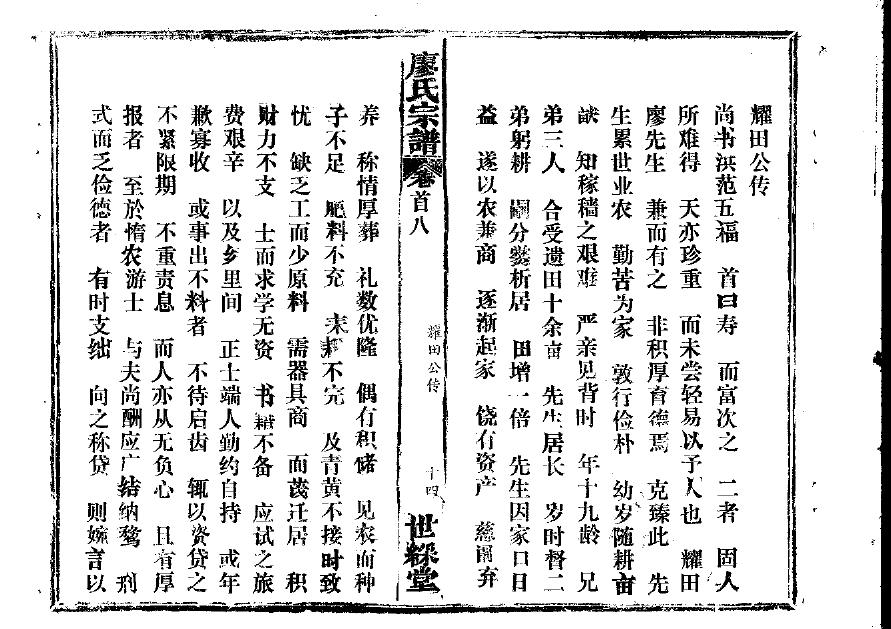 耀田公传
尚书洪范五福 首曰寿 而富次之 二者 固人
所难得 天亦珍重 而未尝轻易以予人也 耀田
廖先生 兼而有之 非积厚育德焉 克臻此 先
生累世业农 勤苦为家 敦行俭朴 幼岁随耕亩
畎 知稼穑之艰难 严亲见背时 年十九龄 兄
弟三人 合受遗田十余亩 先生居长 岁时督二
弟躬耕 嗣分爨析居 田增一倍 先生因家口日
益 遂以农兼商 逐渐起家 饶有资产 慈闱弃
廖氏宗譜
卷首八
耀田公传
十四
世綵堂
养 称情厚葬 礼数优隆 偶有积储 见农而种
子不足 肥料不充 耒耨不完 及青黄不接时致
忧 缺乏工而少原料 需器具商 而茂迁居 积
财力不支 士而求学无资 书籍不备 应试之旅
费艰辛 以及乡里间 正士端人勤约自持 或年
歉寡收 或事出不料者 不待启齿 辄以资贷之
不紧限期 不重责息 而人亦从无负心 且有厚
报者 至於惰农游士 与夫尚酬应广结纳鹜 利
式而乏俭德者 有时支绌 向之称贷 则婉言以